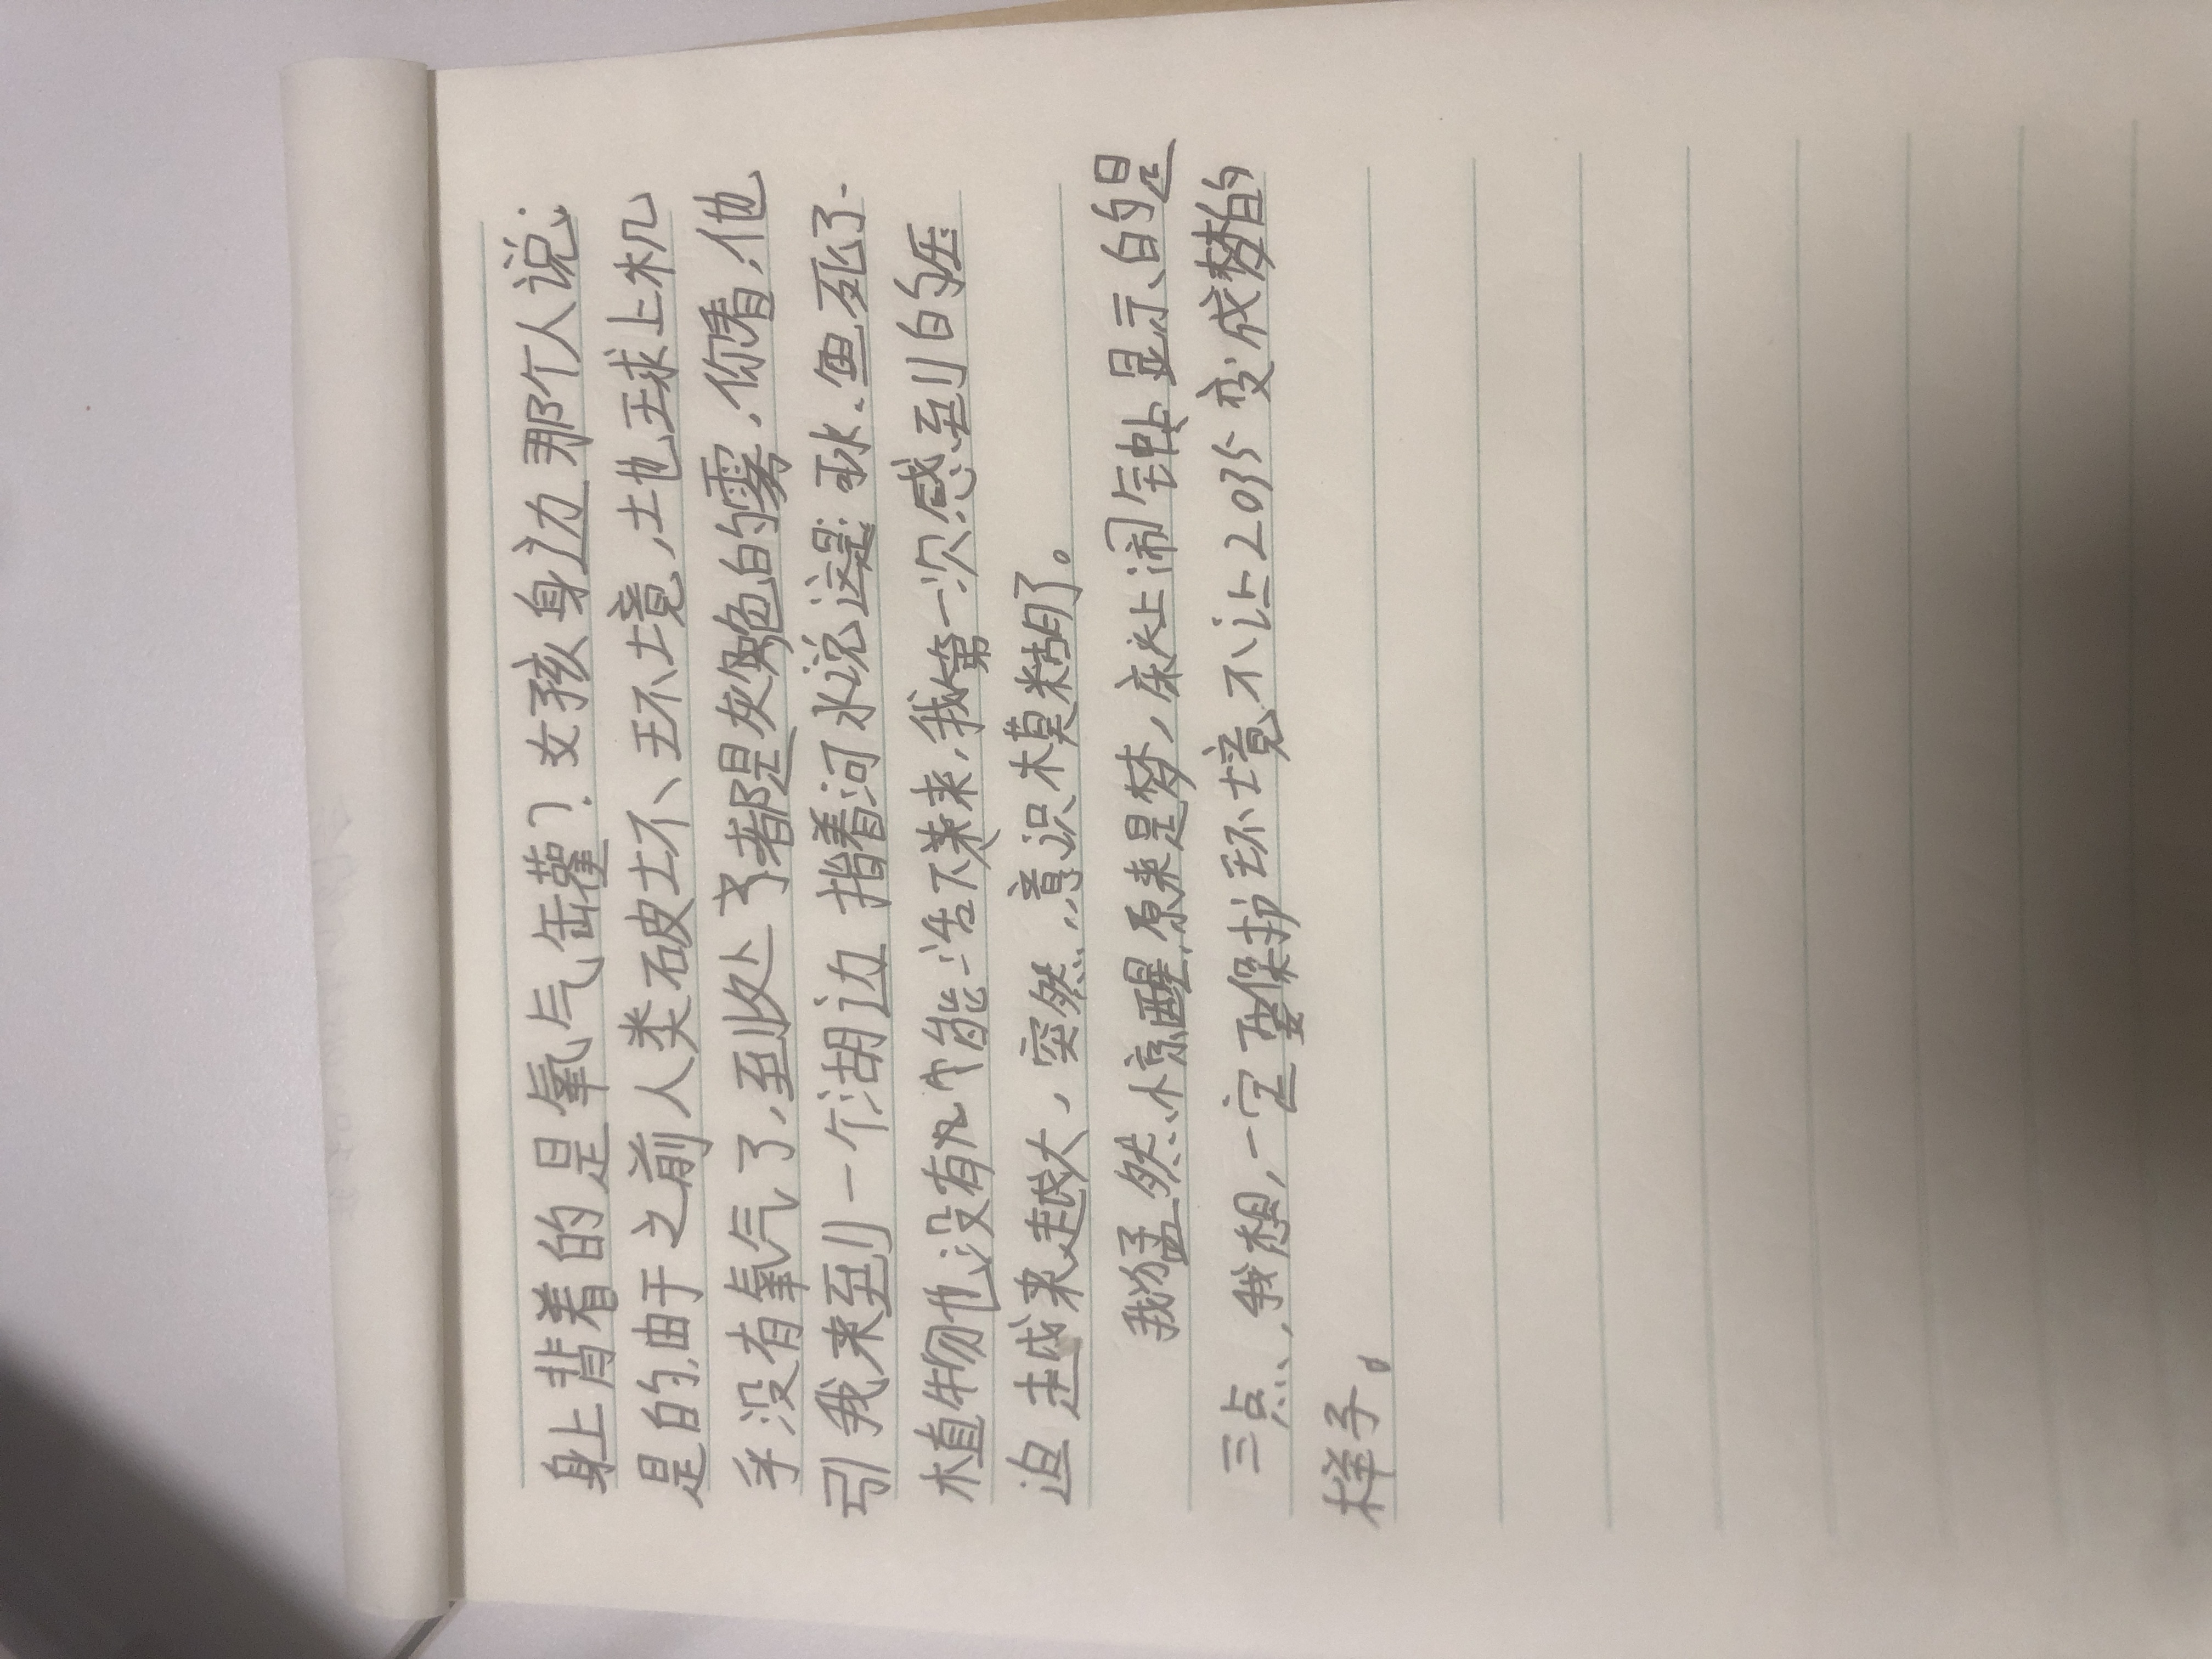 身上背着的是氧气罐？女孩身边那个人说：
是的，由于之前人类破坏、环境，地球上机
乎没有氧气了，到处都是灰色的雾，你看，他
引我来到一个湖边指着河水说这是：水、鱼死了
植物也没有几个能活下来，我第一次感到的压
迫越来越大，突然，意识模糊了。
我猛然惊醒，原来是梦，床上闹钟显示的是
三点，我想，一定要保护环境不让2035变成梦的
样子。